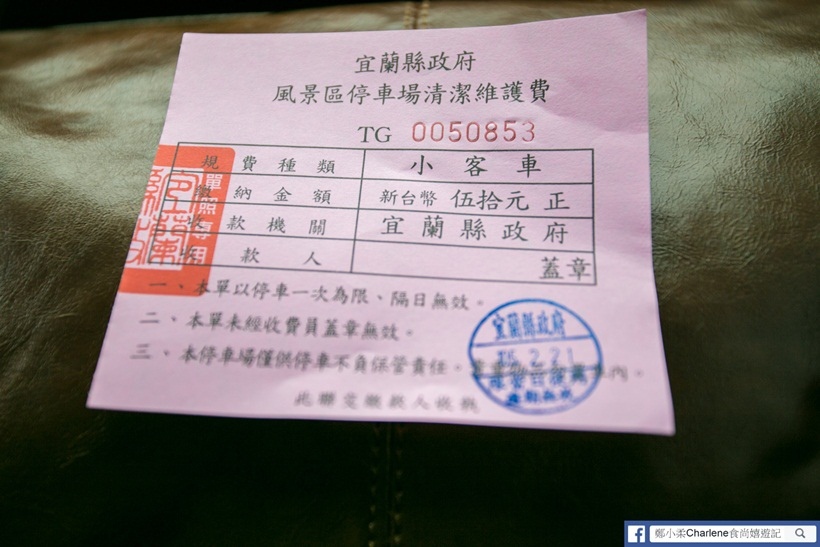 宜蘭縣政府
風景區停車場清潔維護費
TG 0050853
規費種類 小客車
繳納金額 新台幣 伍拾元正
收款機關 宜蘭縣政府
收款人 蓋章
單照專用
一、本單以停車一次為限、隔日無效。
二、本單未經收費員蓋章無效。
三、本停車場僅供停車不負保管責任。
內。
此聯交繳款人收執
宜蘭縣政府
2.21
鄭小柔Charlene食尚嬉遊記